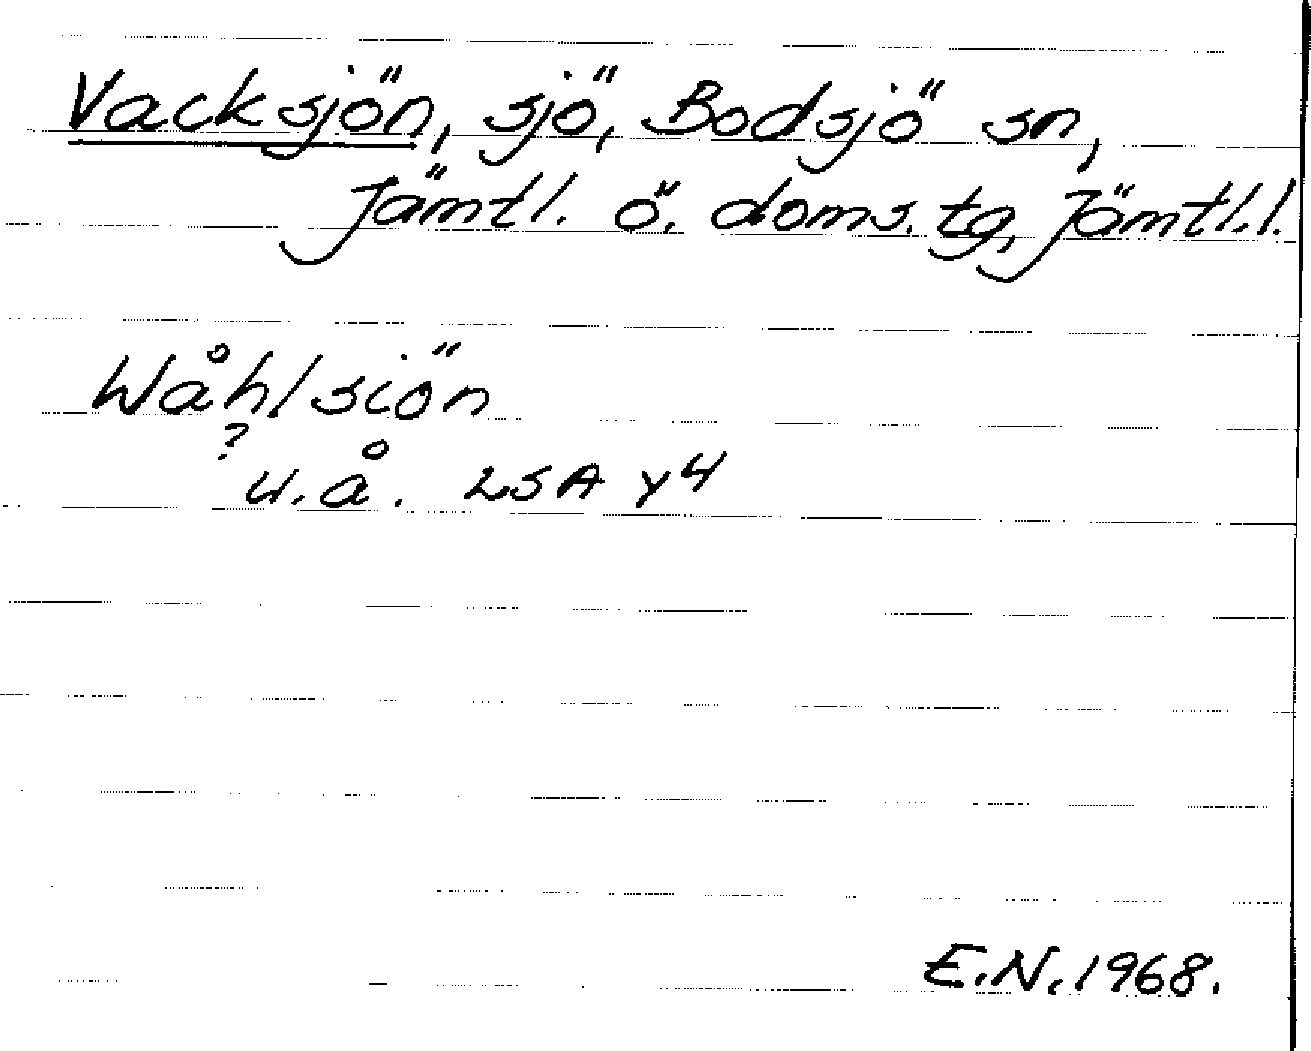 Vacksjön, sjö, Bodsjö sn,
Jämtl. ö. doms. tg, Jämtl.l.
Wåhlsiön
?
u.å. LSA Y4
E.N. 1968.